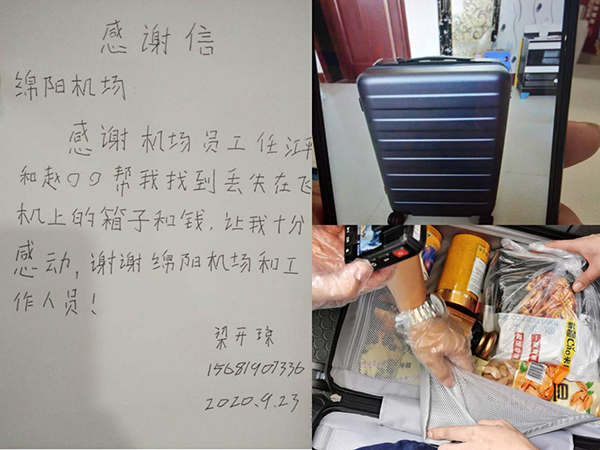 感谢信
绵阳机场
感谢机场员工任江平
和赵〇〇帮我找到丢失在飞
机上的箱子和钱,让我十分
感动,谢谢绵阳机场和工
作人员!
梁开琼
15681907336
2020.9.23